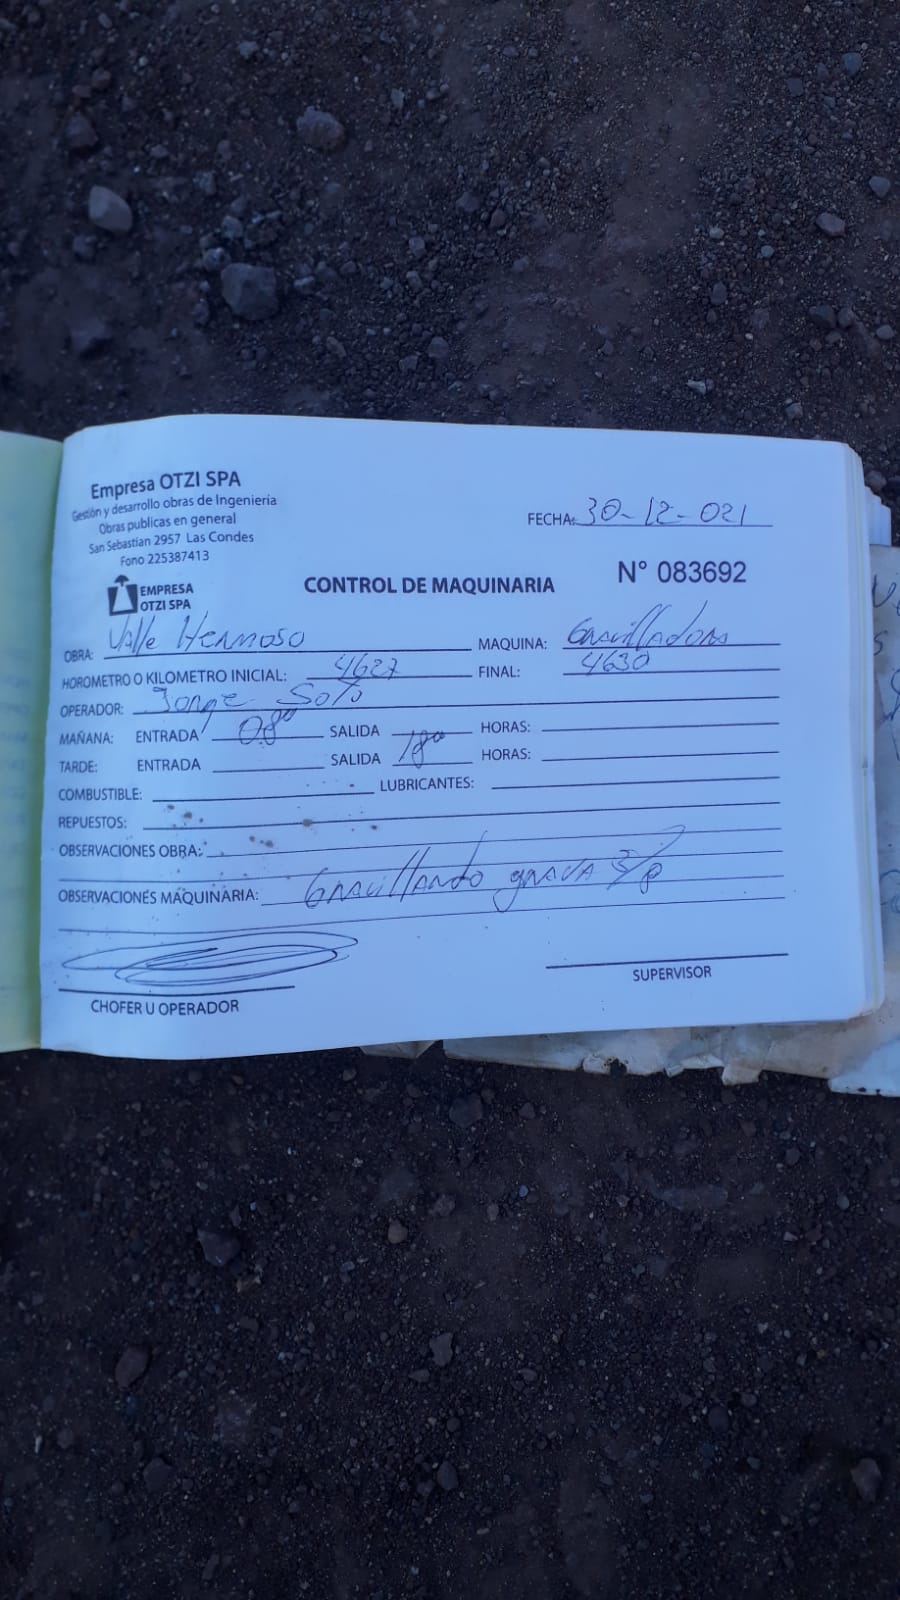 Empresa OTZI SPA
Gestión y desarrollo obras de Ingenieria
Obras publicas en general
San Sebastian 2957 Las Condes
Fono 225387413
FECHA: 30-12-021
EMPRESA
OTZI SPA
CONTROL DE MAQUINARIA
N° 083692
OBRA: Valle Hermoso MAQUINA: Gravilladora
HOROMETRO O KILOMETRO INICIAL: 4627 FINAL: 4630
OPERADOR: Jorge Soto
MAÑANA: ENTRADA 08⁰⁰ SALIDA HORAS:
TARDE: ENTRADA SALIDA 18⁰⁰ HORAS:
COMBUSTIBLE: LUBRICANTES:
REPUESTOS:
OBSERVACIONES OBRA:
OBSERVACIONES MAQUINARIA: Gravillando grava 3/8
CHOFER U OPERADOR
SUPERVISOR